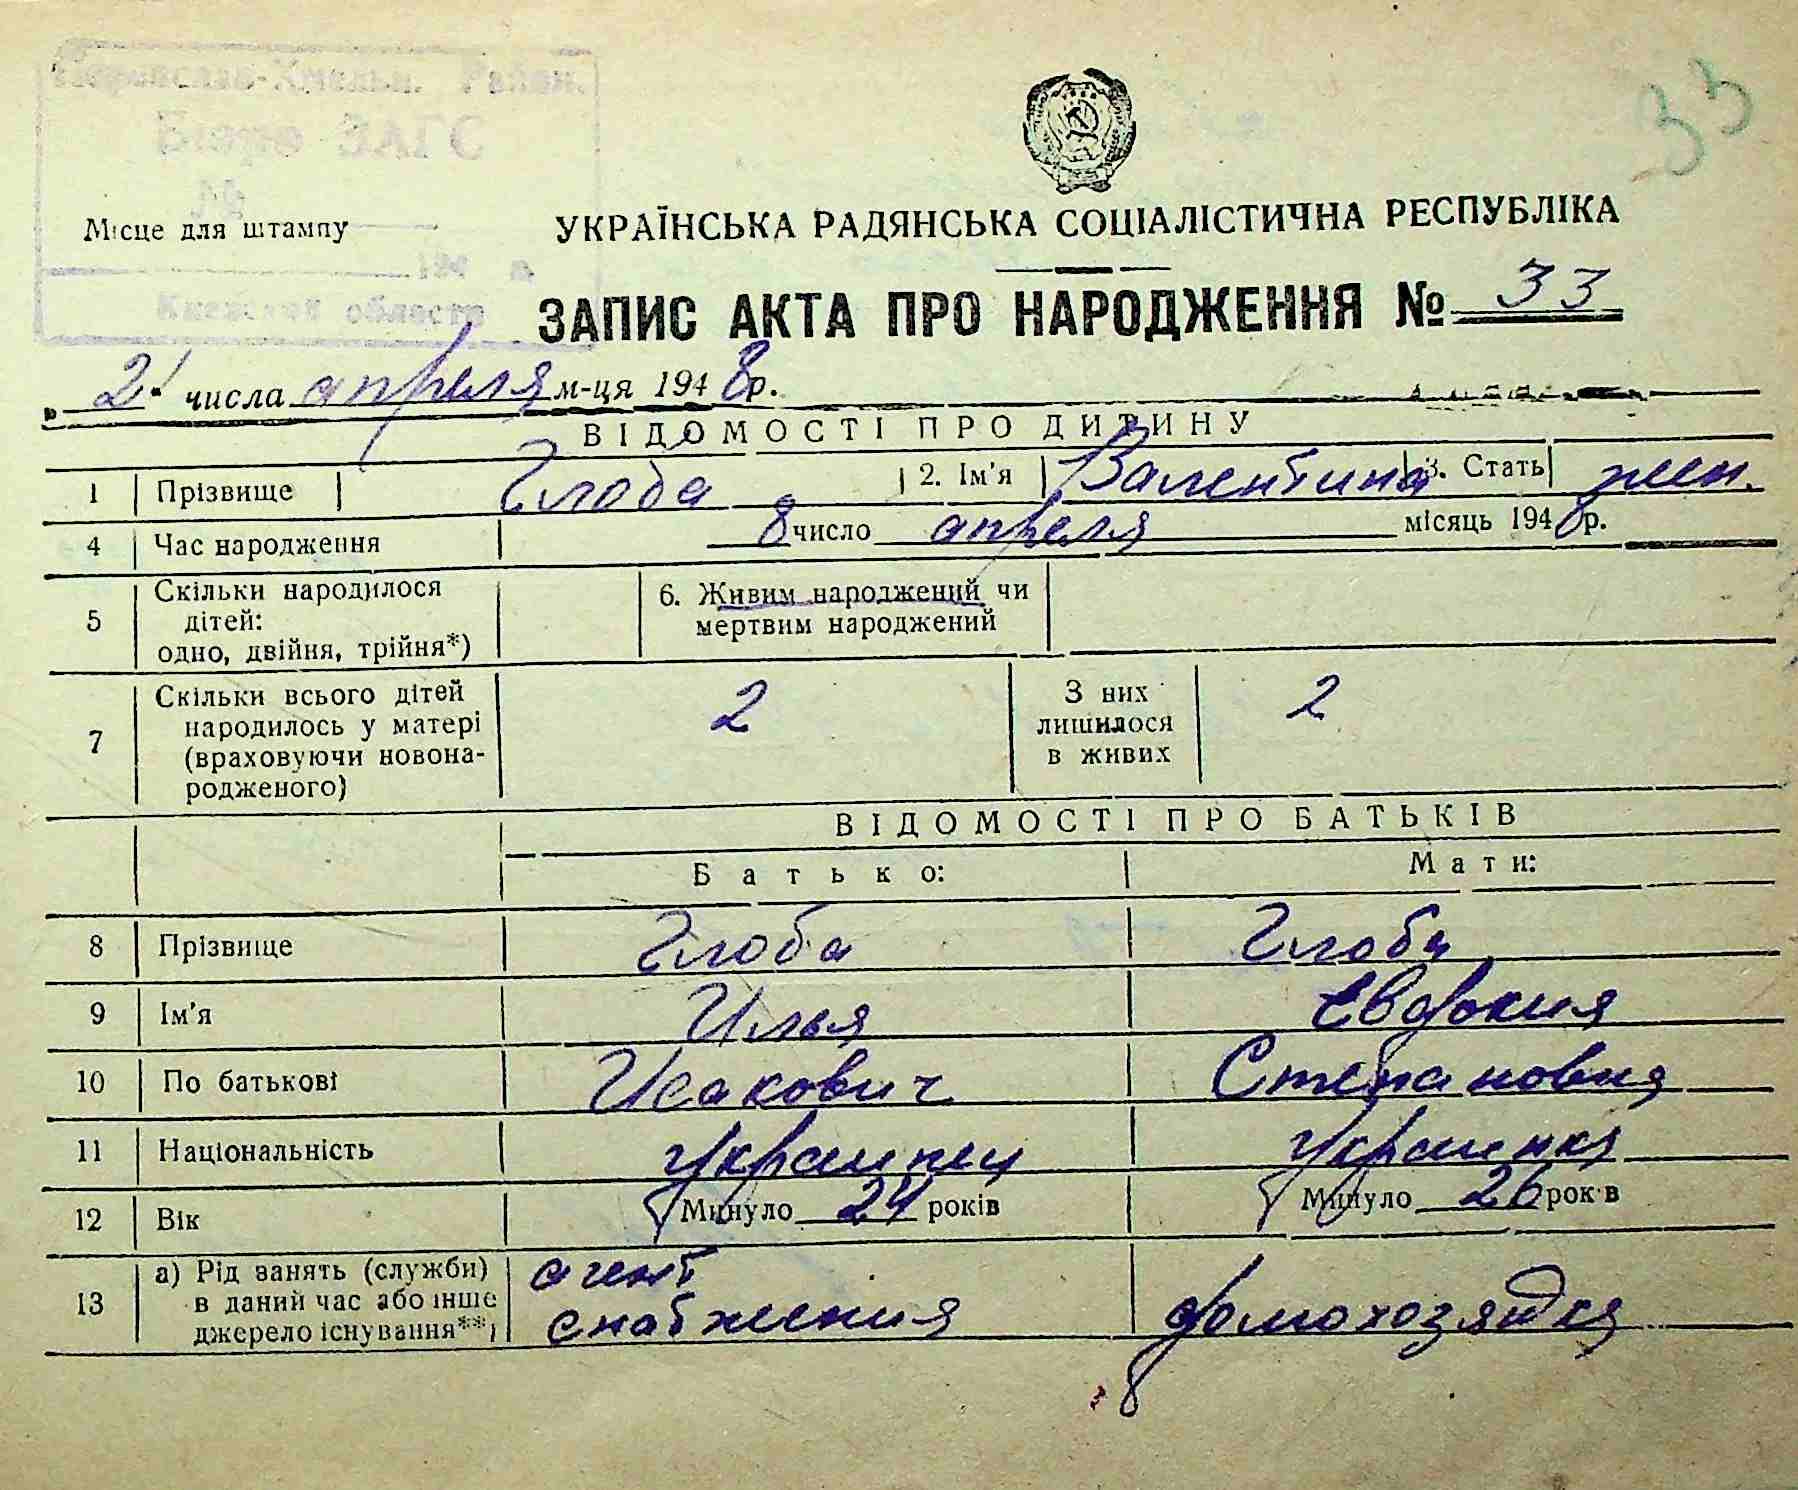 33
Переяслав-Хмельн. Район.
Бюро ЗАГС
№
194 г.
Киевской области
Місце для штампу
УКРАЇНСЬКА РАДЯНСЬКА СОЦІАЛІСТИЧНА РЕСПУБЛІКА
ЗАПИС АКТА ПРО НАРОДЖЕННЯ № 33
„21" числа апреля м-ця 1948р.
ВІДОМОСТІ ПРО ДИТИНУ
1 Прізвище Глоба 2. Ім'я Валентина 3. Стать жен.
4 Час народження 8 число апреля місяць 1948р.
5 Скільки народилося дітей: одно, двійня, трійня*) 6. Живим народжений чи мертвим народжений
7 Скільки всього дітей народилось у матері (враховуючи новона-родженого) 2 З них лишилося в живих 2
ВІДОМОСТІ ПРО БАТЬКІВ
Батько: Мати:
8 Прізвище Глоба Глоба
9 Ім'я Илья Евдокия
10 По батькові Исакович Степановна
11 Національність украинец украинка
12 Вік Минуло 24 років Минуло 26 років
13 а) Рід занять (служби) в даний час або інше джерело існування**) агент снабжения домохозяйка